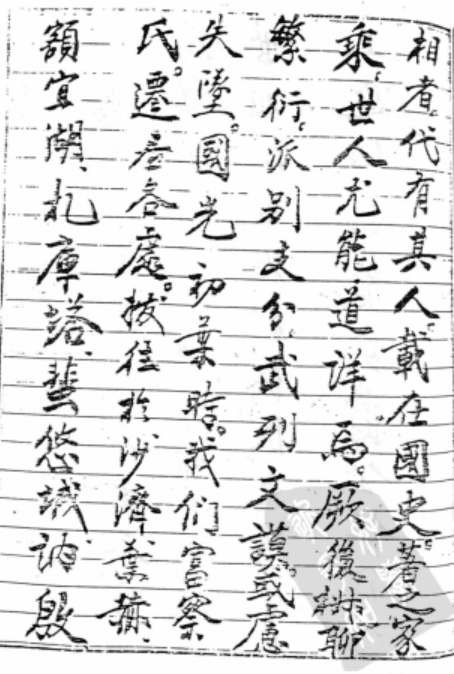 相者。代有其人。載在國史。著之家
乘。世人尤能道詳焉。厥後椒聊
繁衍。派別支分。武列文謨。氏處
失墜。國光初葉時。我们富察
氏。遷居各處。撥往於沙濟、葉赫、
額宜湖、扎庫塔、蜚悠、訥殷